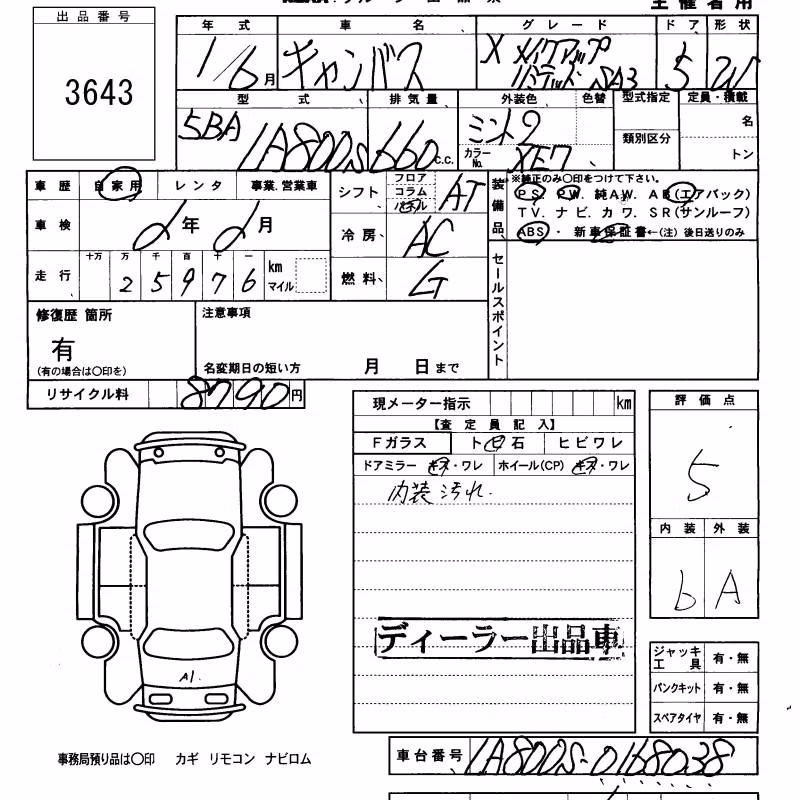 主 催 者 用
出 品 番 号
3643
年 式 車 名 グ レ ー ド ド ア 形 状
1/6月 キャンバス X メイクアップ リミテッド SA3 5 W
型 式 排 気 量 外装色 色替 型式指定 定員・積載
5BA LA800S 660 c.c. ミント2 名
カラーNo. XE7 類別区分 トン
車 歴 自 家 用 レ ン タ 事業.営業車
シフト フロア コラム パネル AT
装備品 ※純正のみ〇印をつけて下さい。
P S. P W. 純A W. A B (エアバック)
T V. ナ ビ. カ ワ. S R (サンルーフ)
ABS ・ 新 車 保 証 書 ←(注) 後日送りのみ
車 検 年 月
冷 房、 AC
走 行 十万 万 千 百 十 一
2 5 9 7 6 km マイル
燃 料、 G
セールスポイント
修復歴 箇所 注意事項
有
(有の場合は〇印を) 名変期日の短い方 月 日 まで
リサイクル料 8790 円
現メーター指示 km
【査 定 員 記 入】
F ガ ラ ス ト ビ 石 ヒ ビ ワ レ
ドアミラー キズ・ワレ ホイール(CP) キズ・ワレ
内装 汚れ.
評 価 点
5
内 装 外 装
b A
ディーラー出品車
A1.
ジャッキ 工 具 有・無
パンクキット 有・無
スペアタイヤ 有・無
事務局預り品は〇印 カギ リモコン ナビロム
車台番号 LA800S-0168038